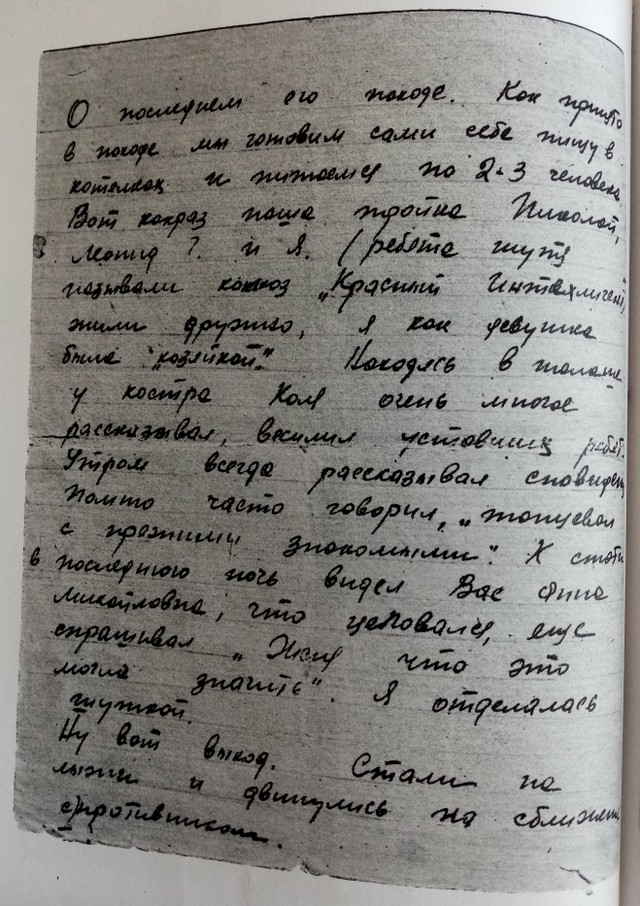 О последнем его походе. Как принято
в походе мы готовим сами себе пищу в
котелках и питаемся по 2-3 человека
Вот какраз наша тройка Николай,
Леонид ? и Я. (ребята шутя
называли колхоз „Красный
жили дружно, я как девушка
была „хозяйкой." Находясь в шалаше
у костра Коля очень многое
рассказывал, веселил уставших ребят.
Утром всегда рассказывал сновиден
помню часто говорил, „танцевал
с прежними знакомыми". К стати
в последнюю ночь видел Вас Анна
Михайловна, что целовался, еще
спрашивал „Женя что это
могла значить". Я отделалась
шуткой.
Ну вот выход. Стали на
лыжи и двинулись на сближен
с противником.